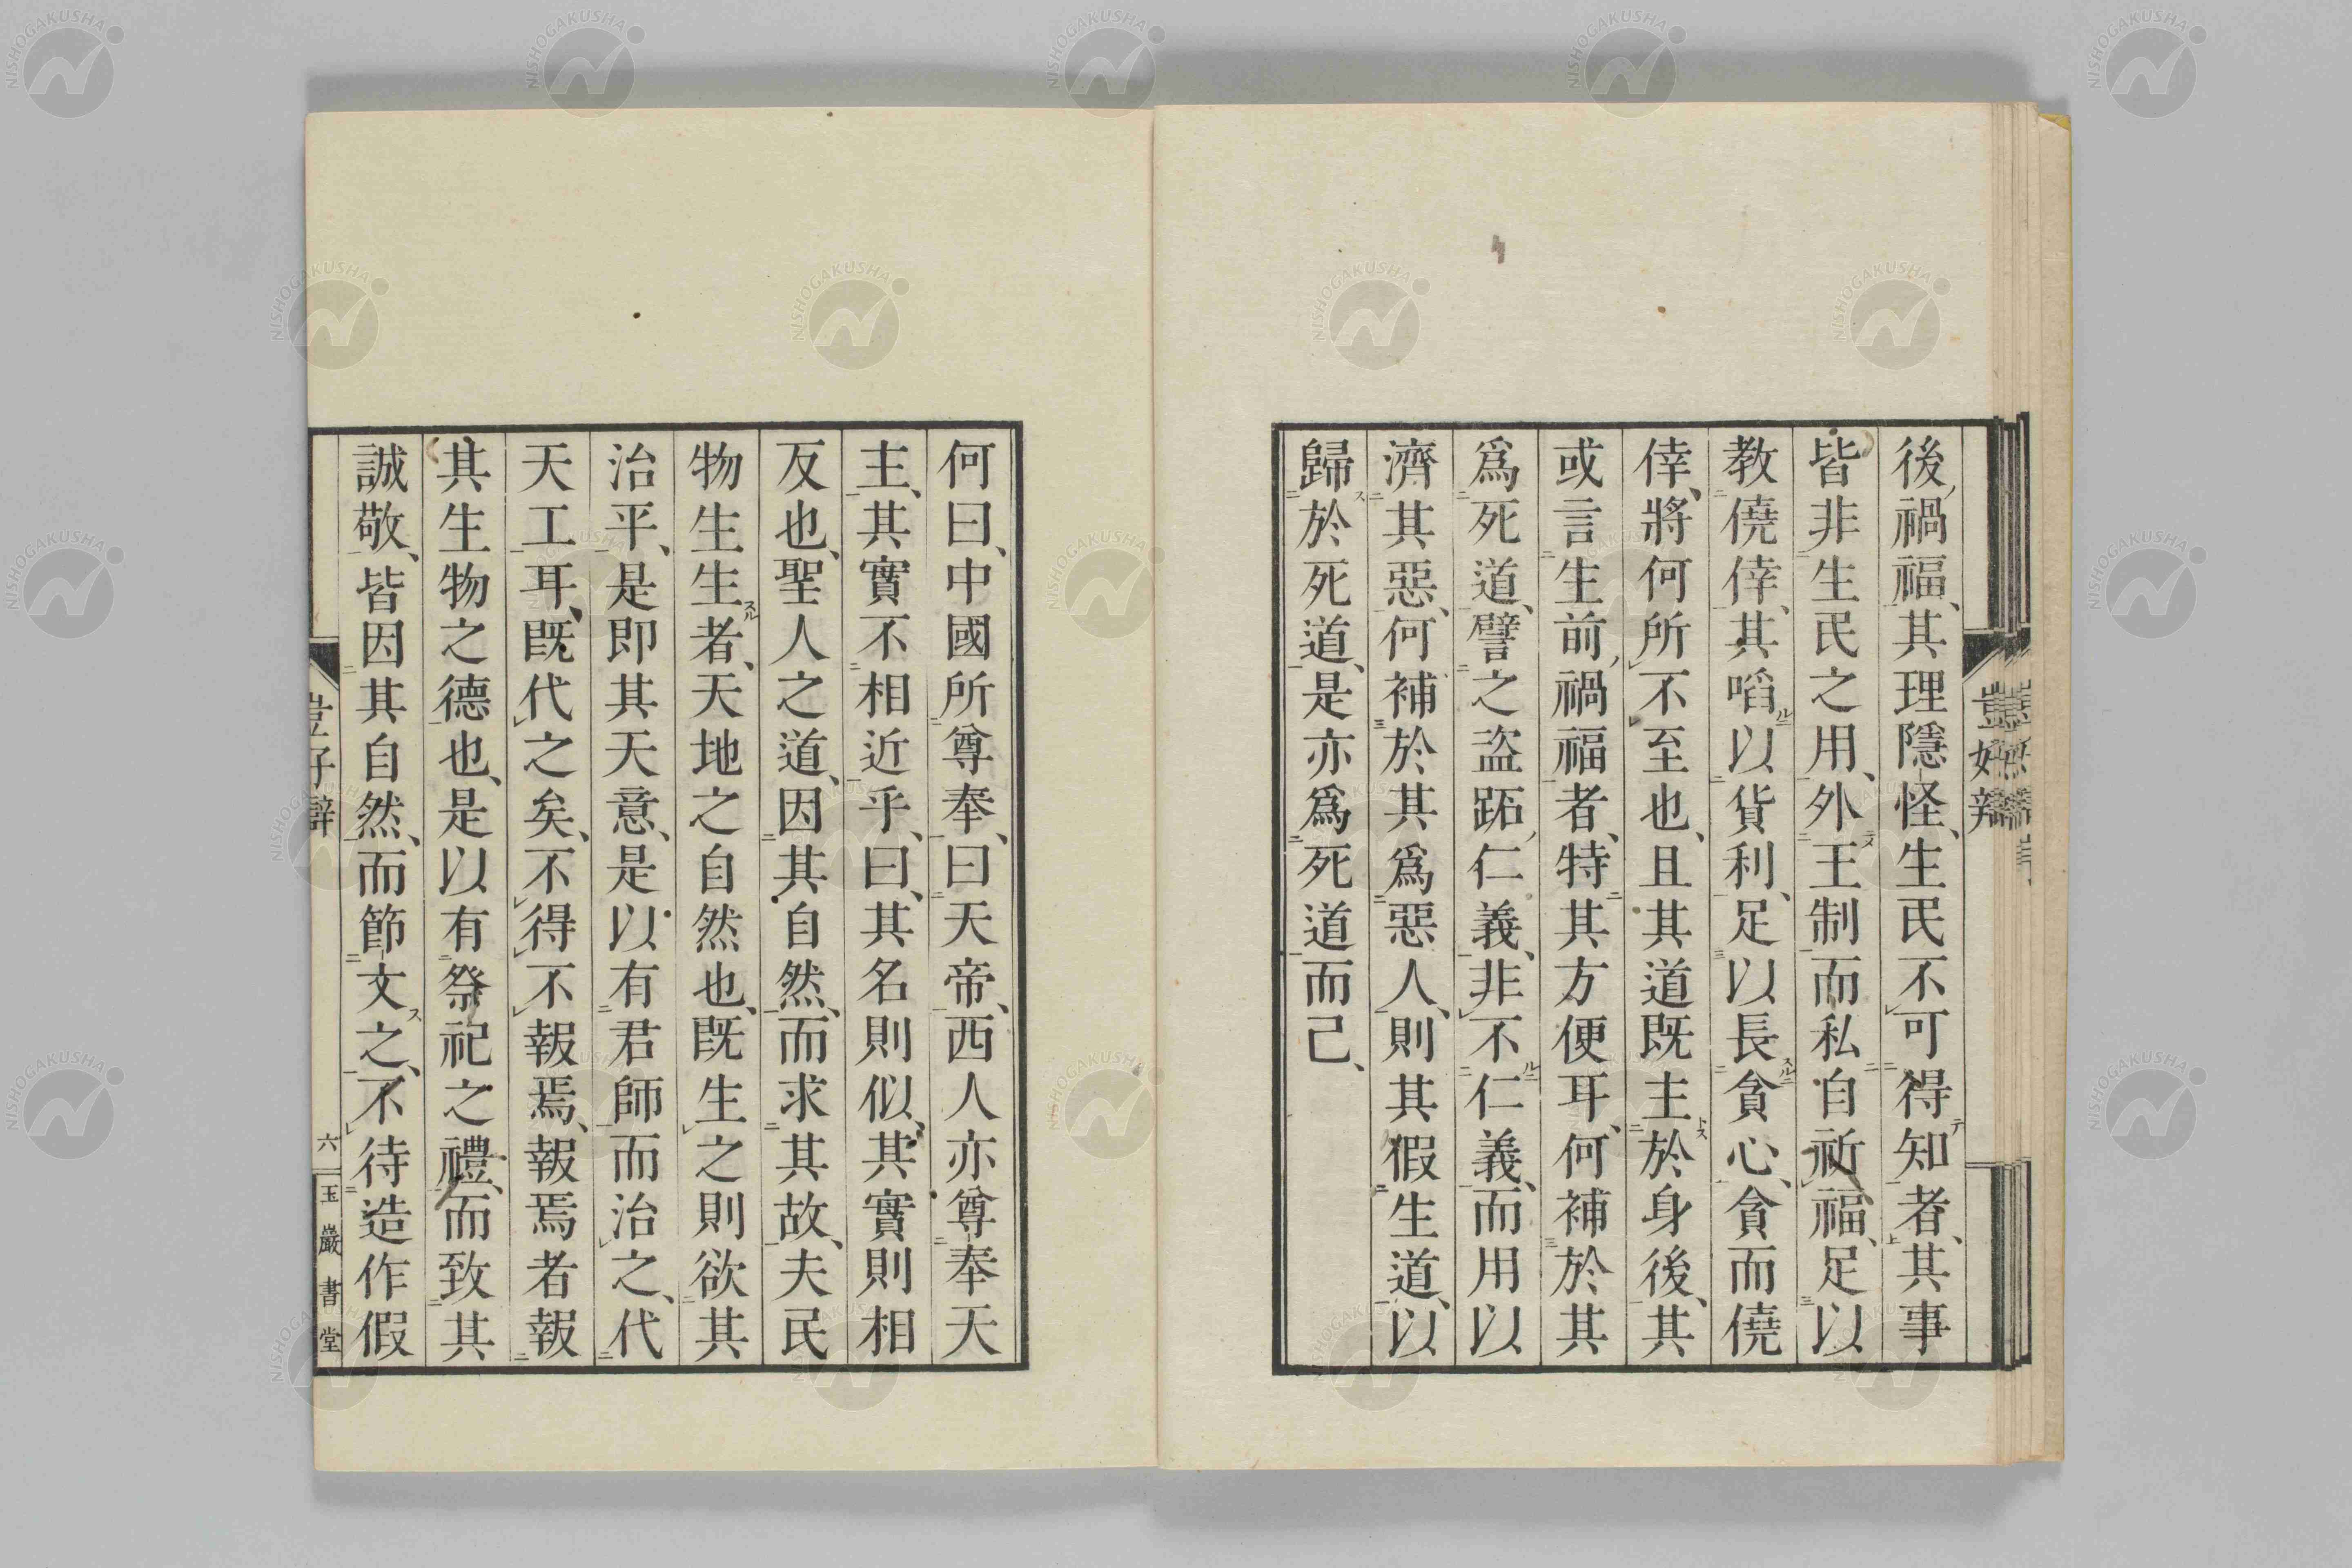 後、禍福、其理隱怪、生民不可得知者、其事
皆非生民之用、外王制而私自祈福、足以
教僥倖、其啗以貨利、足以長貪心、貪而僥
倖、將何所不至也、且其道既主於身後、其
或言生前、禍福者、特其方便耳、何補於其
爲死道、譬之盜跖、仁義、非不仁義、而用以
濟其惡、何補於其爲惡人、則其假生道、以
歸於死道、是亦爲死道而己、
何曰、中國所尊奉、曰天帝、西人亦尊奉天
主、其實不相近乎、曰、其名則似、其實則相
反也、聖人之道、因其自然、而求其故、夫民
物生生者、天地之自然也、既生之則欲其
治平、是即其天意、是以有君師而治之、代
天工耳、既代之矣、不得不報焉、報焉者報
其生物之德也、是以有祭祀之禮、而致其
誠敬、皆因其自然、而節文之、不待造作假
六
玉巖書堂
NISHOGAKUSHA